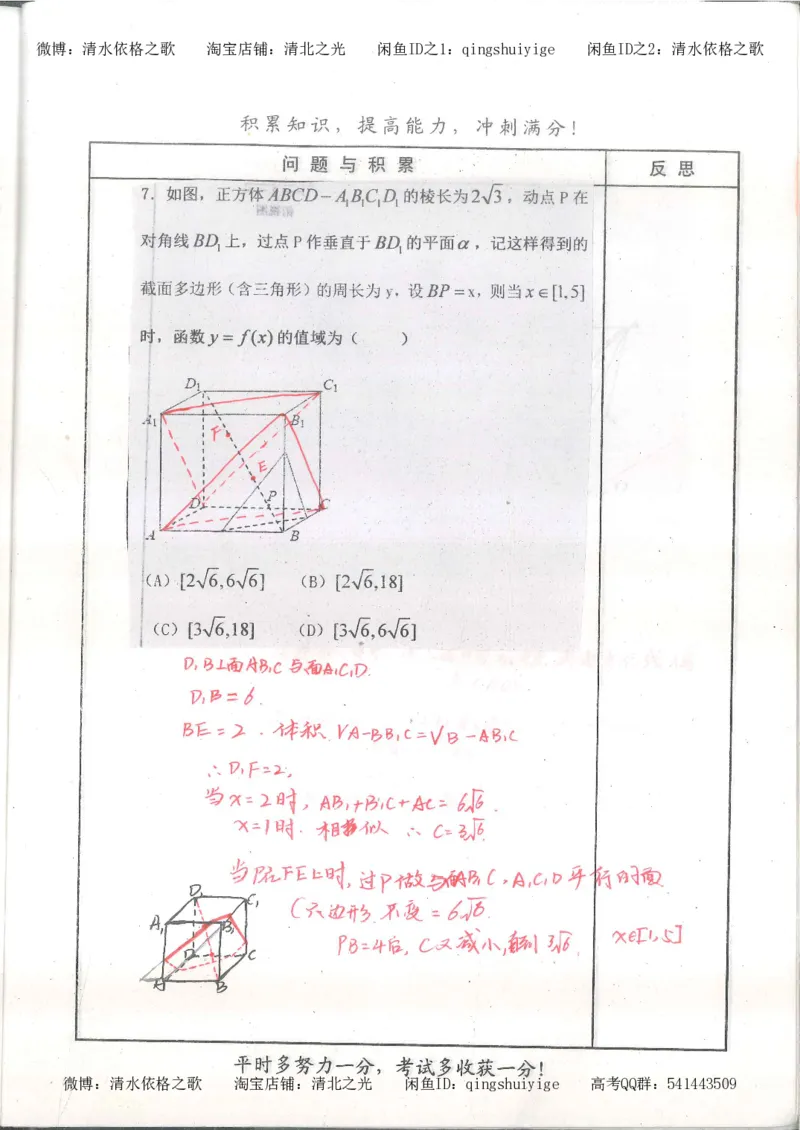 微博：清水依格之歌 淘宝店铺：清北之光 闲鱼ID之1：qingshuiyige 闲鱼ID之2：清水依格之歌
积累知识，提高能力，冲刺满分！
问题与积累 反思
7. 如图，正方体ABCD-A₁B₁C₁D₁的棱长为2√3，动点P在
对角线BD₁上，过点P作垂直于BD₁的平面α，记这样得到的
截面多边形（含三角形）的周长为y，设BP=x，则当x∈[1,5]
时，函数y=f(x)的值域为（ ）
D₁ C₁
A₁ B₁
F
E
D P C
A B
(A) [2√6,6√6] (B) [2√6,18]
(C) [3√6,18] (D) [3√6,6√6]
D₁B⊥面AB₁C与面A₁C₁D.
D₁B=6.
BE=2. 体积 VA-BB₁C=VB-AB₁C
∴D₁F=2,
当x=2时, AB₁+B₁C+AC=6√6.
x=1时. 相似 ∴C=3√6.
当P在FE上时, 过P做与面AB₁C, A₁C₁D平行的面
(六边形 长度=6√6.
PB=4后, C又减小, 到3√6. x∈[1,5]
D₁ C₁
A₁ B₁
D C
A B
平时多努力一分，考试多收获一分！
微博：清水依格之歌 淘宝店铺：清北之光 闲鱼ID：qingshuiyige 高考QQ群：541443509